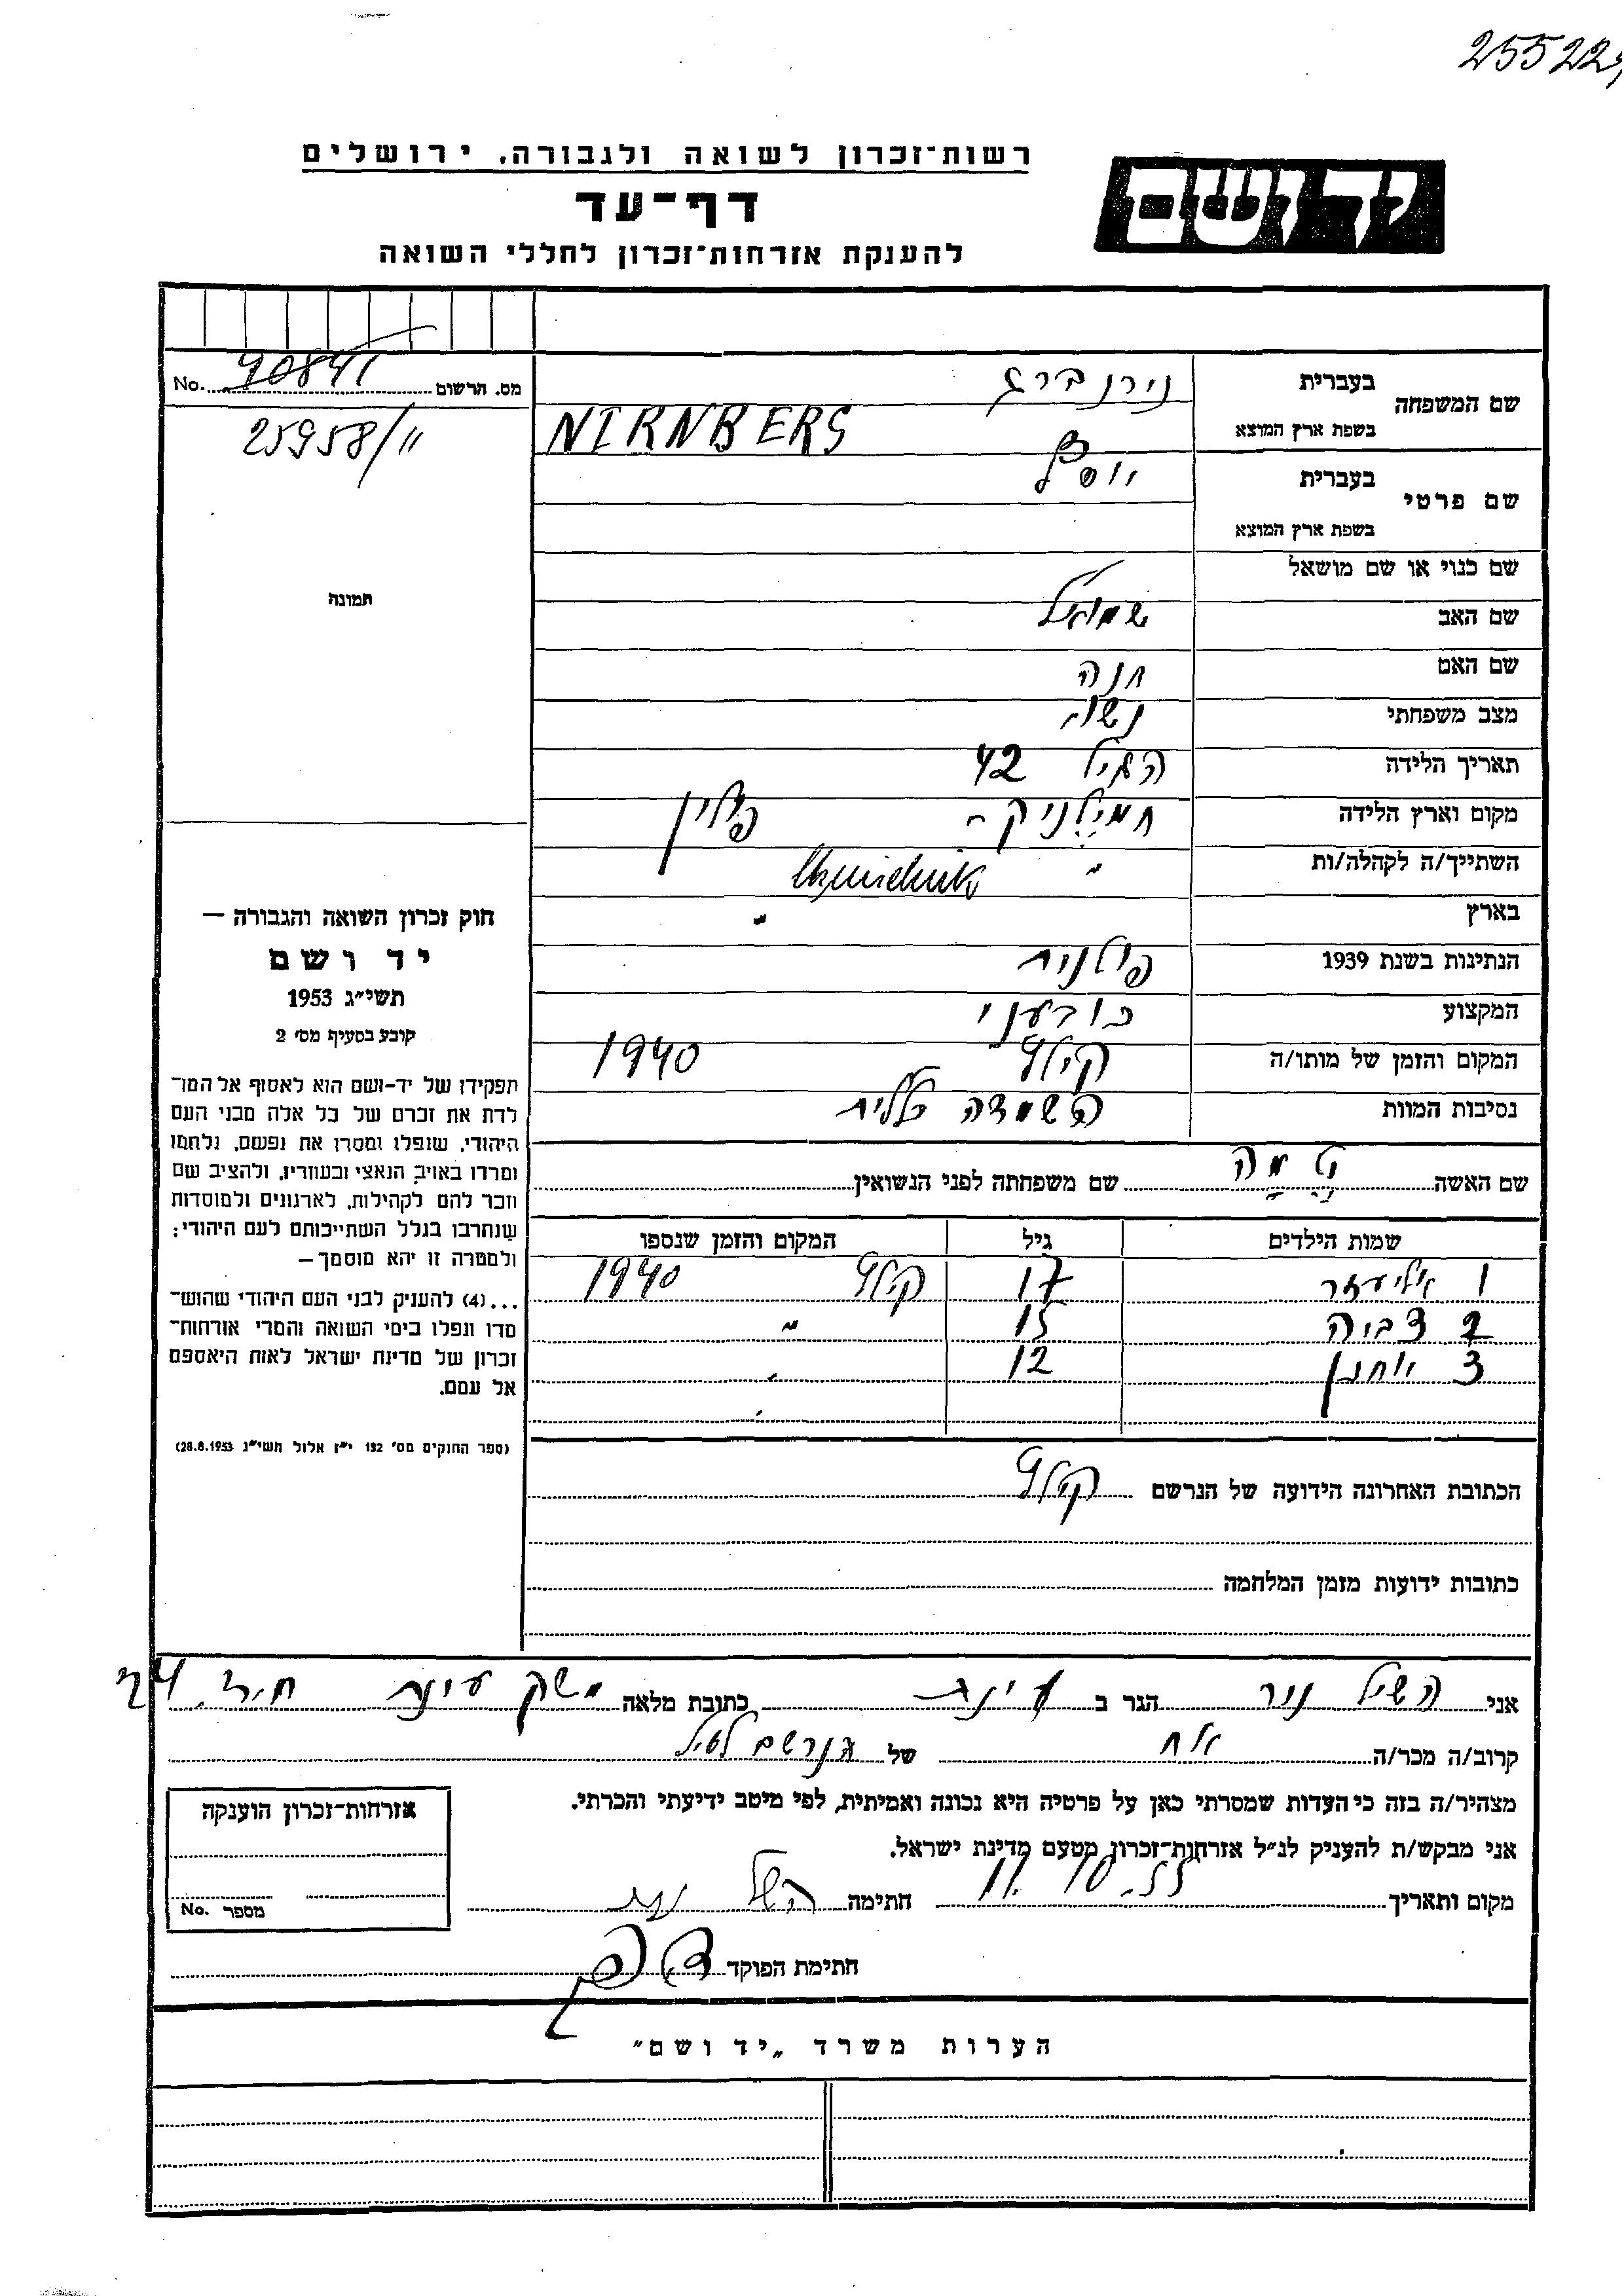 255224
רשות־זכרון לשואה ולגבורה, ירושלים
יד ושם
דף־עד
להענקת אזרחות־זכרון לחללי השואה
מס. הרשום 90841 No.
25958/11
תמונה
שם המשפחה
בעברית נירנברג
בשפת ארץ המוצא NIRNBERG
שם פרטי
בעברית יוסף
בשפת ארץ המוצא
שם כנוי או שם מושאל
שם האב שמואל
שם האם חנה
מצב משפחתי נשוי
תאריך הלידה הגיל 42
מקום וארץ הלידה חמילניק - פולין
השתייך/ה לקהלה/ות " Chmielnik
בארץ "
הנתינות בשנת 1939 פולנית
המקצוע כובעני
המקום והזמן של מותו/ה קילץ 1940
נסיבות המוות השמדה כללית
שם האשה שם משפחתה לפני הנשואין
שמות הילדים גיל המקום והזמן שנספו
1 אליעזר 17 קילץ 1940
2 צביה 15 "
3 יוחנן 12 "
"
הכתובת האחרונה הידועה של הנרשם קילץ
כתובות ידועות מזמן המלחמה
חוק זכרון השואה והגבורה —
יד ושם
תשי״ג 1953
קובע בסעיף מס׳ 2
תפקידו של יד-ושם הוא לאסוף אל המו־
לדת את זכרם של כל אלה מבני העם
היהודי, שנפלו ומסרו את נפשם, נלחמו
ומרדו באויב הנאצי ובעוזריו, ולהציב שם
וזכר להם לקהילות, לארגונים ולמוסדות
שנחרבו בגלל השתייכותם לעם היהודי;
ולמטרה זו יהא מוסמך —
...(4) להעניק לבני העם היהודי שהוש־
מדו ונפלו בימי השואה והמרי אזרחות־
זכרון של מדינת ישראל לאות היאספם
אל עמם.
(ספר החוקים מס׳ 132 י״ז אלול תשי״ג 28.8.1953)
אני השיל ניר הגר ב עינת כתובת מלאה משק עינת ת.ד. 24
קרוב/ה מכר/ה אח של הנרשם לעיל
מצהיר/ה בזה כי העדות שמסרתי כאן על פרטיה היא נכונה ואמיתית, לפי מיטב ידיעתי והכרתי.
אני מבקש/ת להעניק לנ״ל אזרחות־זכרון מטעם מדינת ישראל.
מקום ותאריך 11.10.55 חתימה השל ניר
חתימת הפוקד
אזרחות-זכרון הוענקה
מספר No.
הערות משרד „יד ושם״